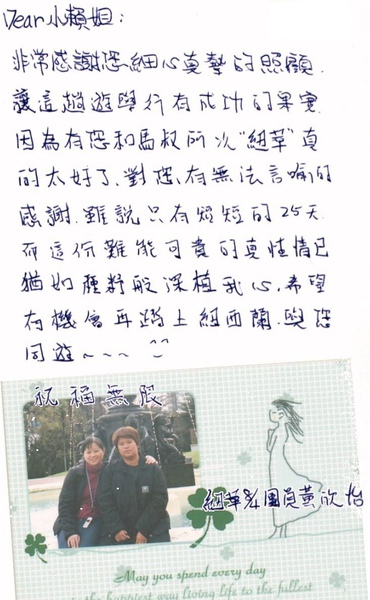 Dear 小賴姐:
非常感謝您細心真摯的照顧.
讓這趟遊學行有成功的果實
因為有您和馬叔所以"紐華"真
的太好了、對您、有無法言喻的
感謝.雖說只有短短的25天.
而這份難能可貴的真性情已
猶如種籽般深植我心、希望
有機會再踏上紐西蘭.與您
同遊~~~ ^^
祝福無限
紐華 團員黃欣怡
May you spend every day
in the happiest way living life to the fullest